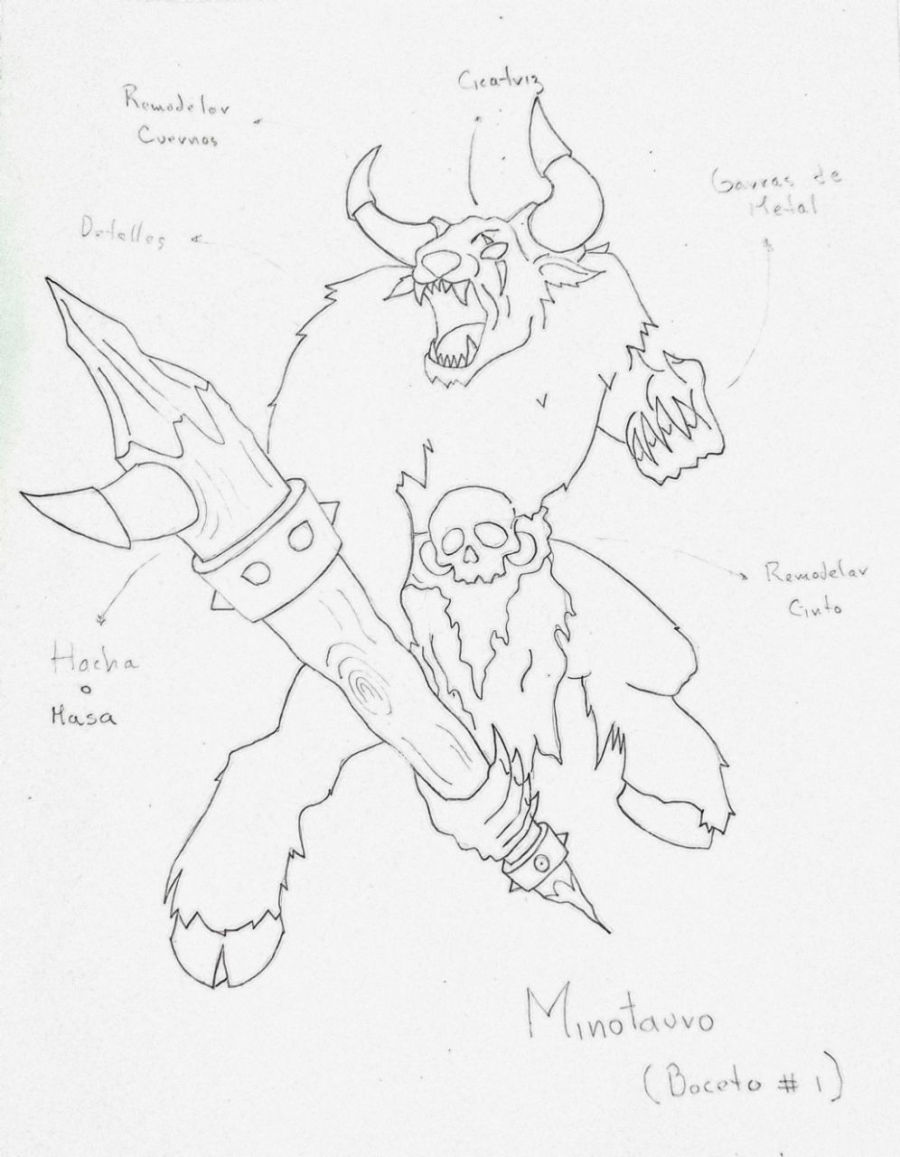 Cicatriz
Remodelar
Cuernos
Garras de
Metal
Detalles
Remodelar
Cinto
Hacha
o
Masa
Minotauro
(Boceto # 1)